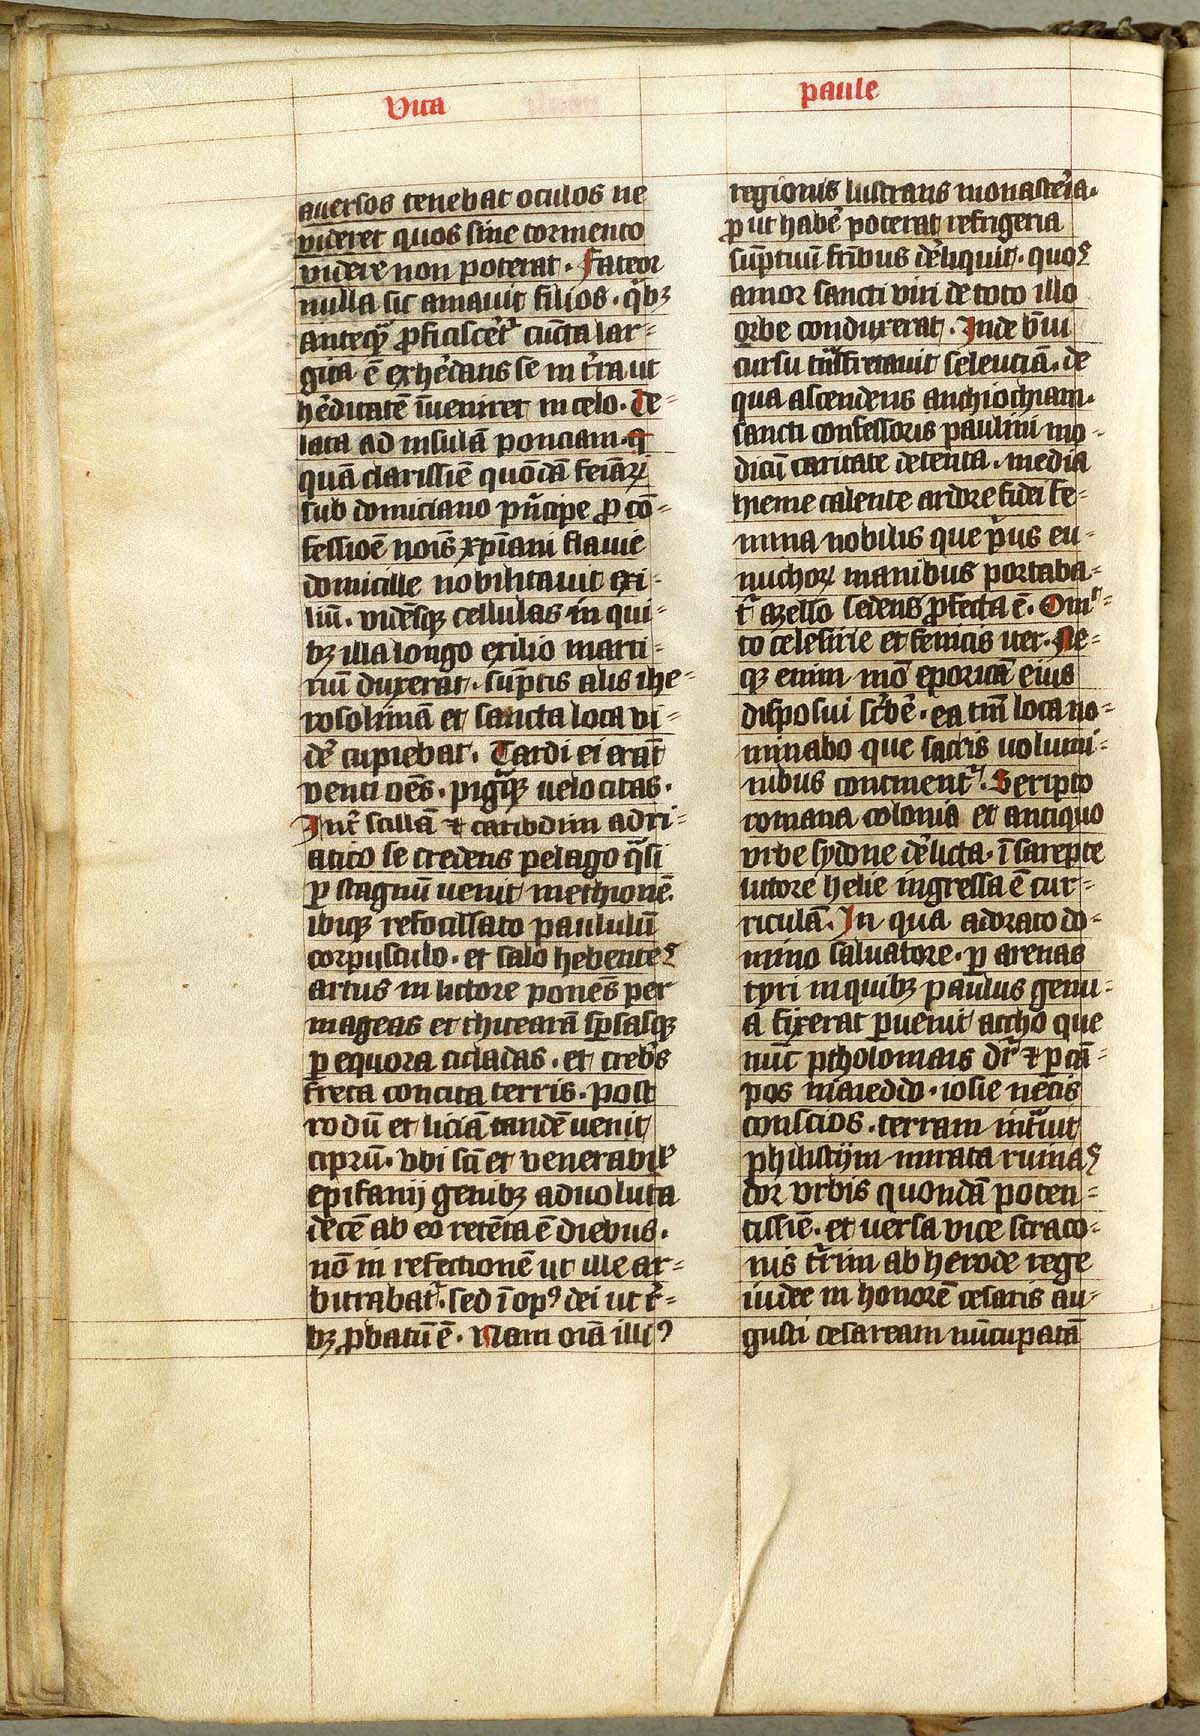 Vita
paule
auersos tenebat oculos ne
videret quos sine tormento
videre non poterat. Fateor
nulla sic amauit filios. qͥbꝫ
anteqͣꝫ ꝓficiscēt᷑ cūcta lar⸗
gita ē exhēdans se in tr̄a ut
hēditatē īueniret in celo. De⸗
lata ad insulā ponciam. q̄
quā clarissīe quōdā feīaꝝ
sub domiciano pͥncipe ꝓ cō⸗
fessiōe noīs xp̄iani flauie
domicille nobilitauit exi⸗
liū. vidēsqꝫ cellulas in qui⸗
bꝫ illa longo exilio marti⸗
riū duxerat. sūptis alis ihe⸗
rosolimā et sancta loca vi⸗
dē cupiebat. Tardi ei erāt
venti oēs. pigͣqꝫ uelocitas.
Int̄ scillā ⁊ caribdim adri⸗
atico se credens pelago qͣsi
ꝑ stagnū uenit methionē.
ibiqꝫ refocillato paululū
corpusculo. et salo hebentes
artus in littore ponēs per
mageas et thitearā sp̄sasqꝫ
ꝑ equora cicladas. et creb̄s
freta concita terris. post
rodū et liciā tandē uenit
ciprū. vbi sc̄i et venerabil̓
epifanij genibꝫ aduoluta
decē ab eo retēta ē diebus.
nō in refectionē ut ille ar⸗
bitrabat᷑. sed ī opꝰ dei ut r̄⸗
bꝫ ꝓbatū ē. Nam oīa illiꝰ
regionis lustrans monastēia.
ꝓ ut habē poterat refrigeria
sūptuū fr̄ibus dēliquit. quos
amor sancti viri de toto illo
orbe conduxerat. Inde b̄ui
cursu tͣnsfretauit seleuciā. de
qua ascendens anthiochiam.
sancti confessoris paulini mo⸗
dicū caritate detenta. media
hieme calente ardore fidei fe⸗
mina nobilis que pͥus eu⸗
nuchoꝝ manibus portaba⸗
t᷑ azello sedens ꝓfecta ē. Omͥ⸗
to celesirie et fenicis iter. Ne⸗
qꝫ enim mō eporicā eius
disposui sc̄bē. ea tm̄ loca no⸗
minabo que sacris uolumi⸗
nibus continent᷑. Beripto
romana colonia et antiquo
vrbe sydone dēlicta. ī sarepte
littore helie ingressa ē tur⸗
riculā. In qua adorato do⸗
mino saluatore. ꝑ arenas
tyri in quibꝫ paulus genu⸗
a fixerat ꝑuenit accho que
nūc ptholomais dr̄ ⁊ ꝑ cā⸗
pos maieddo. iosie nēcis
conscios. terram intͣuit
philistijm mirata ruinas
dor vrbis quondā poten⸗
tissīe. et uersa vice straco⸗
nis t᷑rim ab herode rege
iudee in honorē cesaris au⸗
gusti cesaream nūcupatā